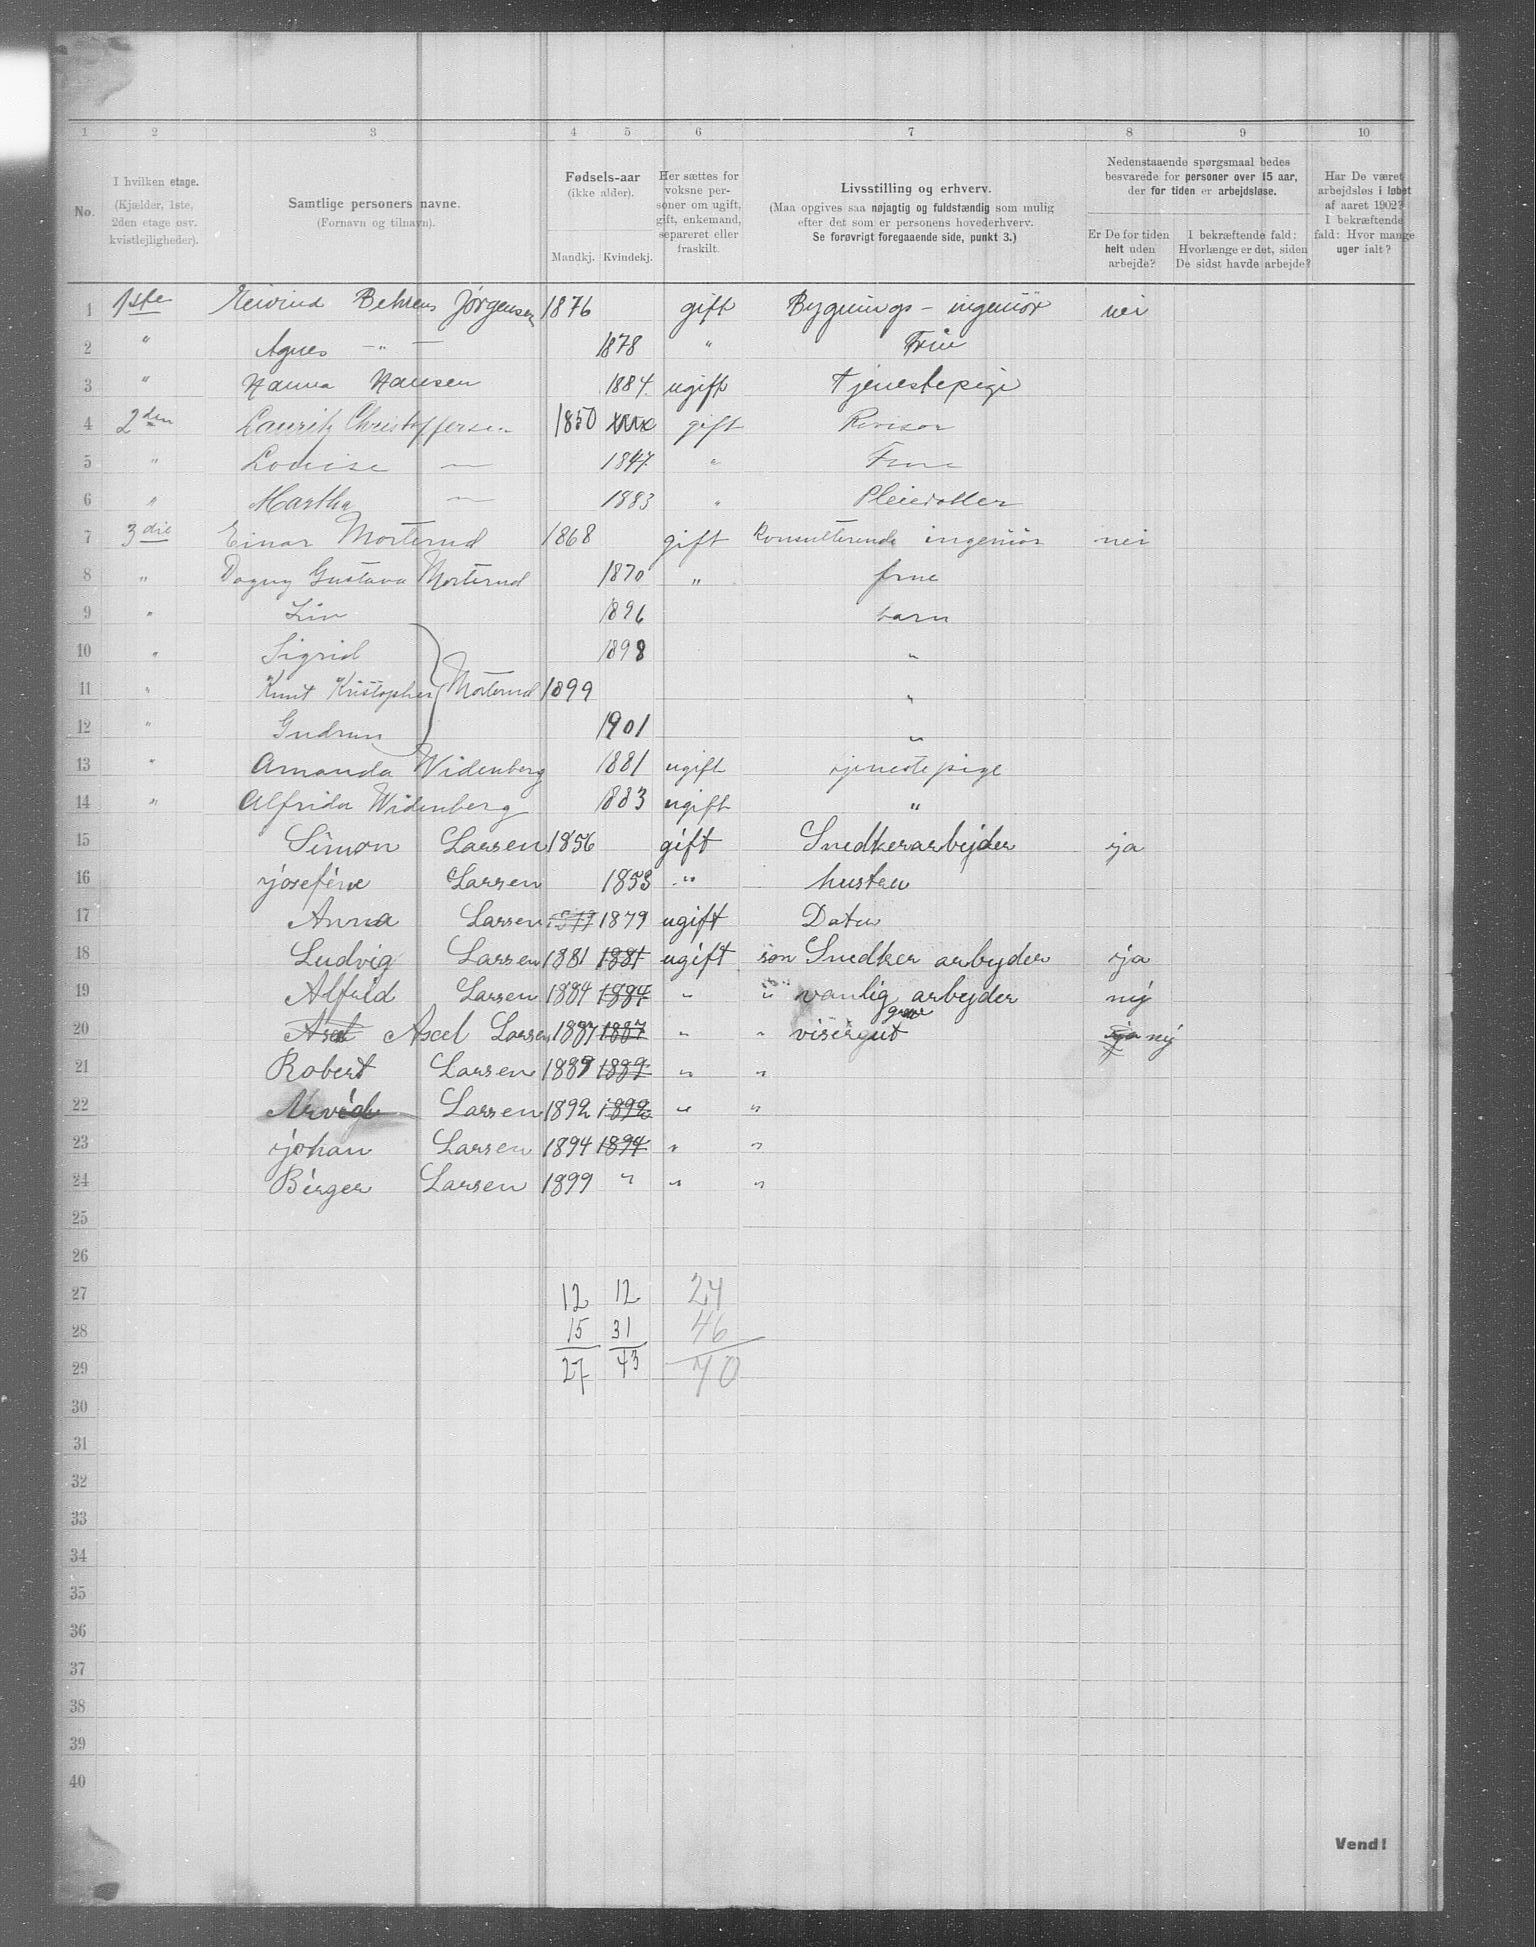 1 2 3 4 5 6 7 8 9 10
No.
I hvilken etage.
(Kjælder, 1ste,
2den etage osv.
kvistlejligheder).
Samtlige personers navne.
(Fornavn og tilnavn).
Fødsels-aar
(ikke alder).
Mandkj. Kvindekj.
Her sættes for
voksne per-
soner om ugift,
gift, enkemand,
separeret eller
fraskilt.
Livsstilling og erhverv.
(Maa opgives saa nøjagtig og fuldstændig som mulig
efter det som er personens hovederhverv.
Se forøvrigt foregaaende side, punkt 3.)
Nedenstaaende spørgsmaal bedes
besvarede for personer over 15 aar,
der for tiden er arbejdsløse.
Er De for tiden
helt uden
arbejde?
I bekræftende fald:
Hvorlænge er det, siden
De sidst havde arbejde?
Har De været
arbejdsløs i løbet
af aaret 1902?
I bekræftende
fald: Hvor mange
uger ialt?
1 1ste Eeivind Behrens Jørgensen 1876 gift Bygnings-ingeniør nei
2 " Agnes -"- 1878 " Frue
3 " Hanna Hansen 1884. ugift Tjenestepige
4 2den Lauritz Christoffersen 1850 gift Revisor
5 " Louise — 1847. " Frue
6 " Martha — 1883 " Pleiedatter
7 3die Einar Morterud 1868 gift Konsulterende ingeniør nei
8 " Dagny Gustava Morterud 1870 " frue
9 " Liv 1896 barn
10 " Sigrid 1898 "
11 " Knut Kristopher Morterud 1899 "
12 " Gudrun 1901 "
13 " Amanda Widenberg 1881 ugift tjenestepige
14 " Alfrida Widenberg 1883 ugift "
15 Simon Larsen 1856 gift Snedkerarbejder ja
16 josefine Larsen 1853 " hustru
17 Anna Larsen 1879 ugift Datu
18 Ludvig Larsen 1881 1881 ugift søn Snedker arbejder ja
19 Alfrid Larsen 1884 1884 " " vanlig arbejder nij
20 Axel Axel Larsen 1887 1887 " " visergut ja nij
21 Robert Larsen 1889 1889 " "
22 Arvid Larsen 1892 1892 " "
23 johan Larsen 1894 1894 " "
24 Birger Larsen 1899 " " "
25
26
27 12 12 24
28 15 31 46
29 27 43 70
30
31
32
33
34
35
36
37
38
39
40
Vend!